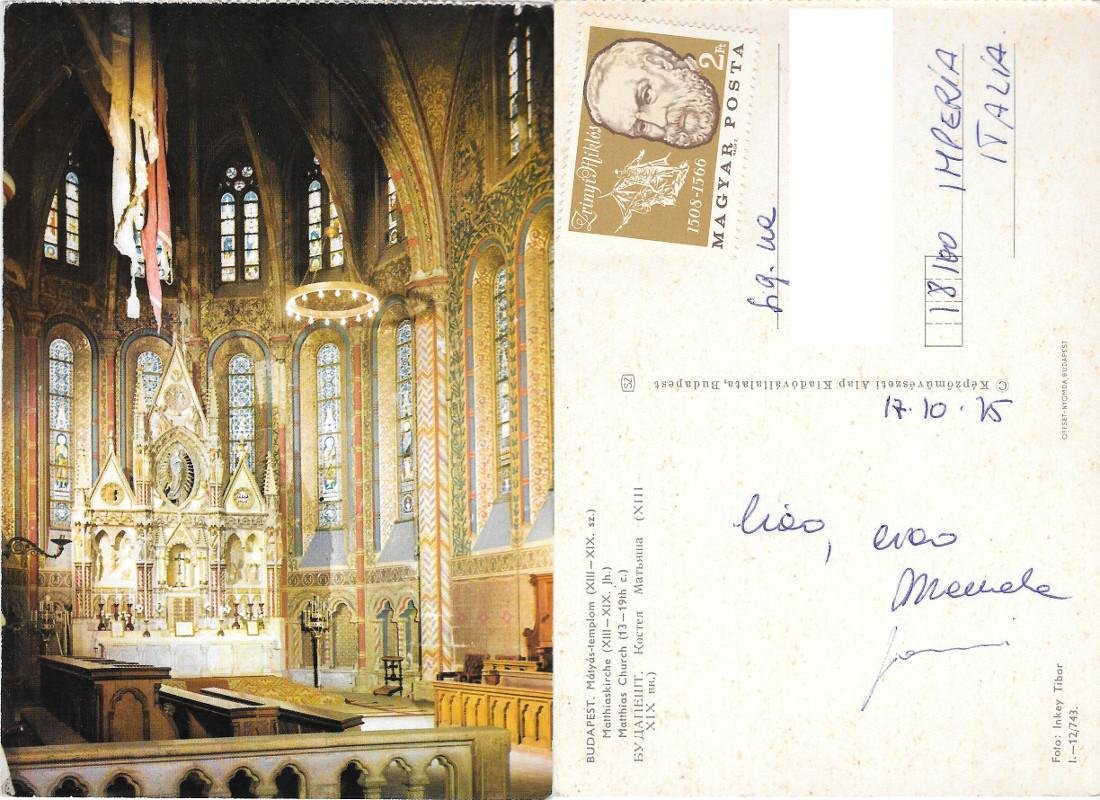 2 Ft
MAGYAR POSTA
Zrínyi Miklós
1508-1566
Sig. na
18100 IMPERIA
ITALIA.
SZ © Képzőművészeti Alap Kiadóvállalata, Budapest
OFFSET-NYOMDA BUDAPEST
17.10.75
Ciao, ciao
BUDAPEST. Mátyás-templom (XIII—XIX. sz.)
Matthiaskirche (XIII—XIX. Jh.)
Matthias Church (13—19th c.)
БУДАПЕШТ. Костел Матьяша (XIII
XIX вв.)
Foto: Inkey Tibor
I.—12/743.